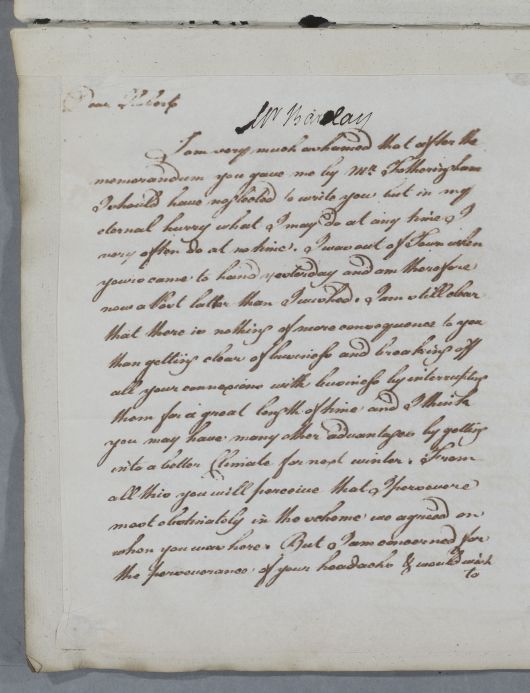 Dear
Mr Barclay
I am very much ashamed that after the
memorandum you gave me by Mr. Fotheringham
I should have neglected to write you but in my
eternal hurry what I may do at any time I
very often do at no time. I was out of Town when
yours came to hand yesterday and am therefore
now a Post latter than I wished. I am still clear
that there is nothing of more consequence to you
than getting clear of business and breaking off
all your connexions with business by interrupting
them for a great length of time and I think
you may have many other advantages by getting
into a better Climate for next winter. From
all this you will perceive that I persevere
most obstinately in the scheme we agreed on
when you was here. But I am concerned for
the perseverance of your headachs & would wish
to